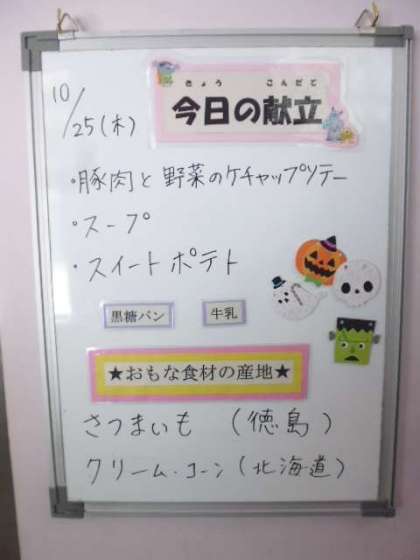 10/25(木)
きょう こんだて
今日の献立
・豚肉と野菜のケチャップソテー
・スープ
・スイートポテト
黒糖パン 牛乳
★おもな食材の産地★
さつまいも (徳島)
クリーム・コーン(北海道)